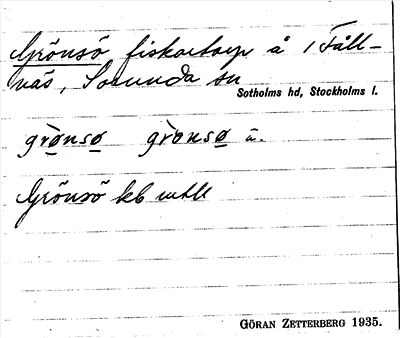 Grönsö fiskartorp å 1 Fåll-
näs, Sorunda sn
Sotholms hd, Stockholms l.
grø̀nsø grò̀nsø ā.
Grönsö kb mtll
GÖRAN ZETTERBERG 1935.